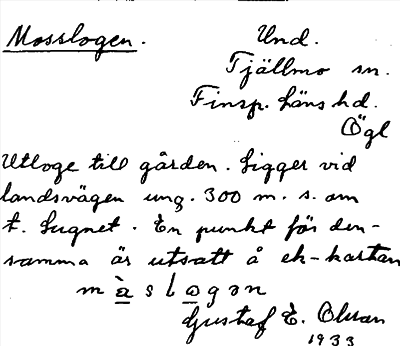 Mosslogen.
Und.
Tjällmo sn.
Finsp. läns hd.
Ögl
Utloge till gården. Ligger vid
landsvägen ung. 300 m. s. om
t. Lugnet. En punkt för den-
samma är utsatt å ek-kartan
màslogən
Gustaf E. Olsson
1933